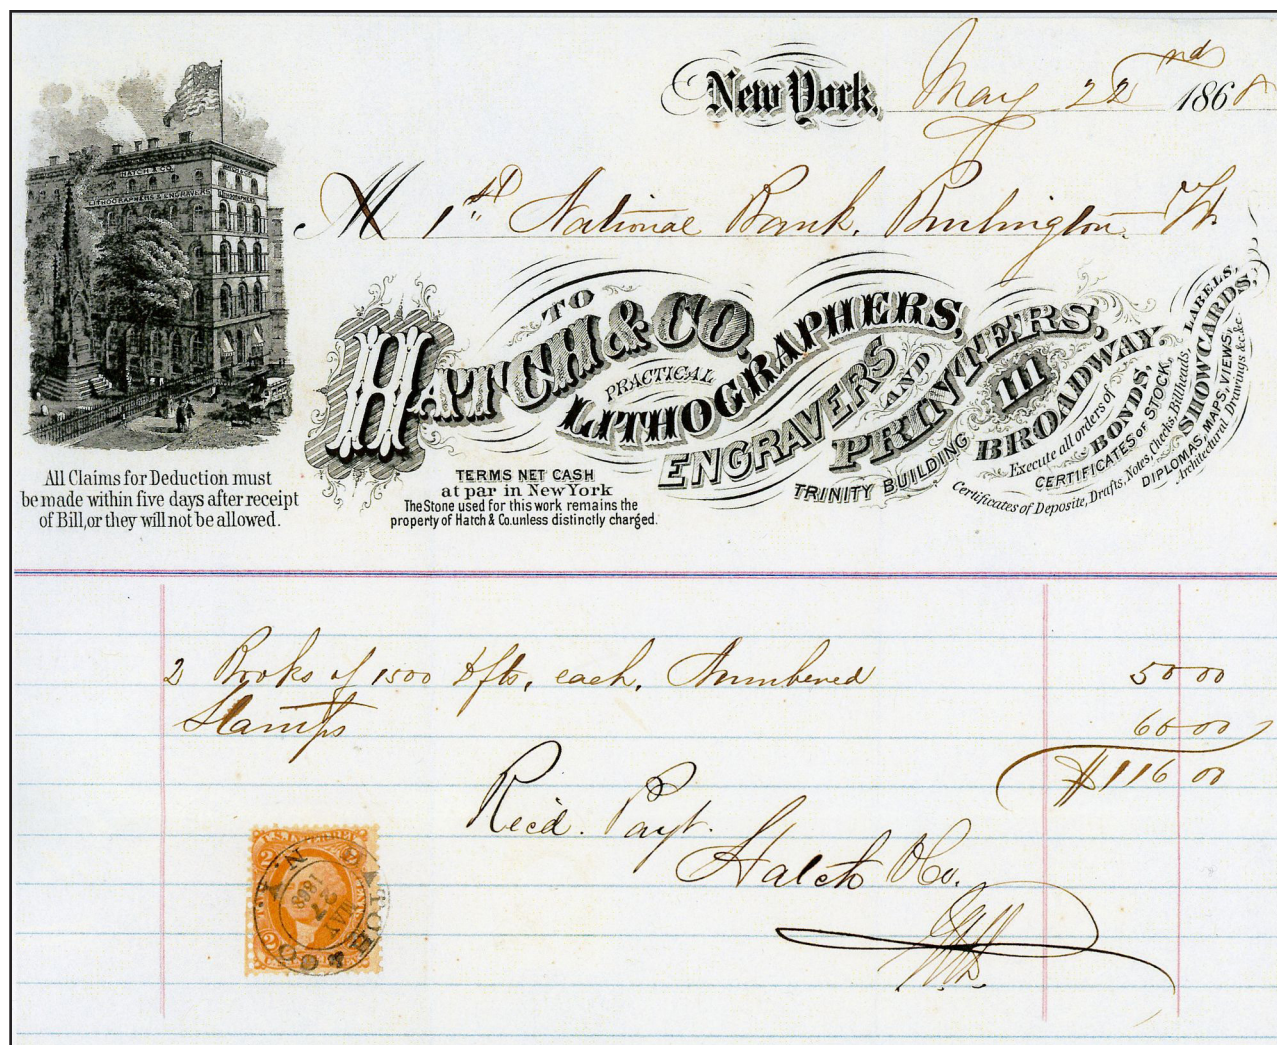 New York, May 22nd 1868
M 1st National Bank, Burlington. Vt.
HATCH & CO.
LITHOGRAPHERS & ENGRAVERS
TO
HATCH & CO.
PRACTICAL
LITHOGRAPHERS,
ENGRAVERS AND
PRINTERS,
TRINITY BUILDING 111
BROADWAY
Execute all orders of
BONDS,
CERTIFICATES OF STOCK,
Certificates of Deposite, Drafts, Notes, Checks, Billheads, LABELS,
SHOWCARDS,
DIPLOMAS, MAPS, VIEWS,
Architectural Drawings &c&c.
All Claims for Deduction must
be made within five days after receipt
of Bill, or they will not be allowed.
TERMS NET CASH
at par in New York
The Stone used for this work remains the
property of Hatch & Co. unless distinctly charged.
2 Books of 1500 Dfts, each, Numbered 50 00
Stamps 60 00
$116 00
Recd. Payt.
Hatch & Co.
U.S. INTER. REV.
HATCH & CO N.Y.
MAY
27
1868
2 2